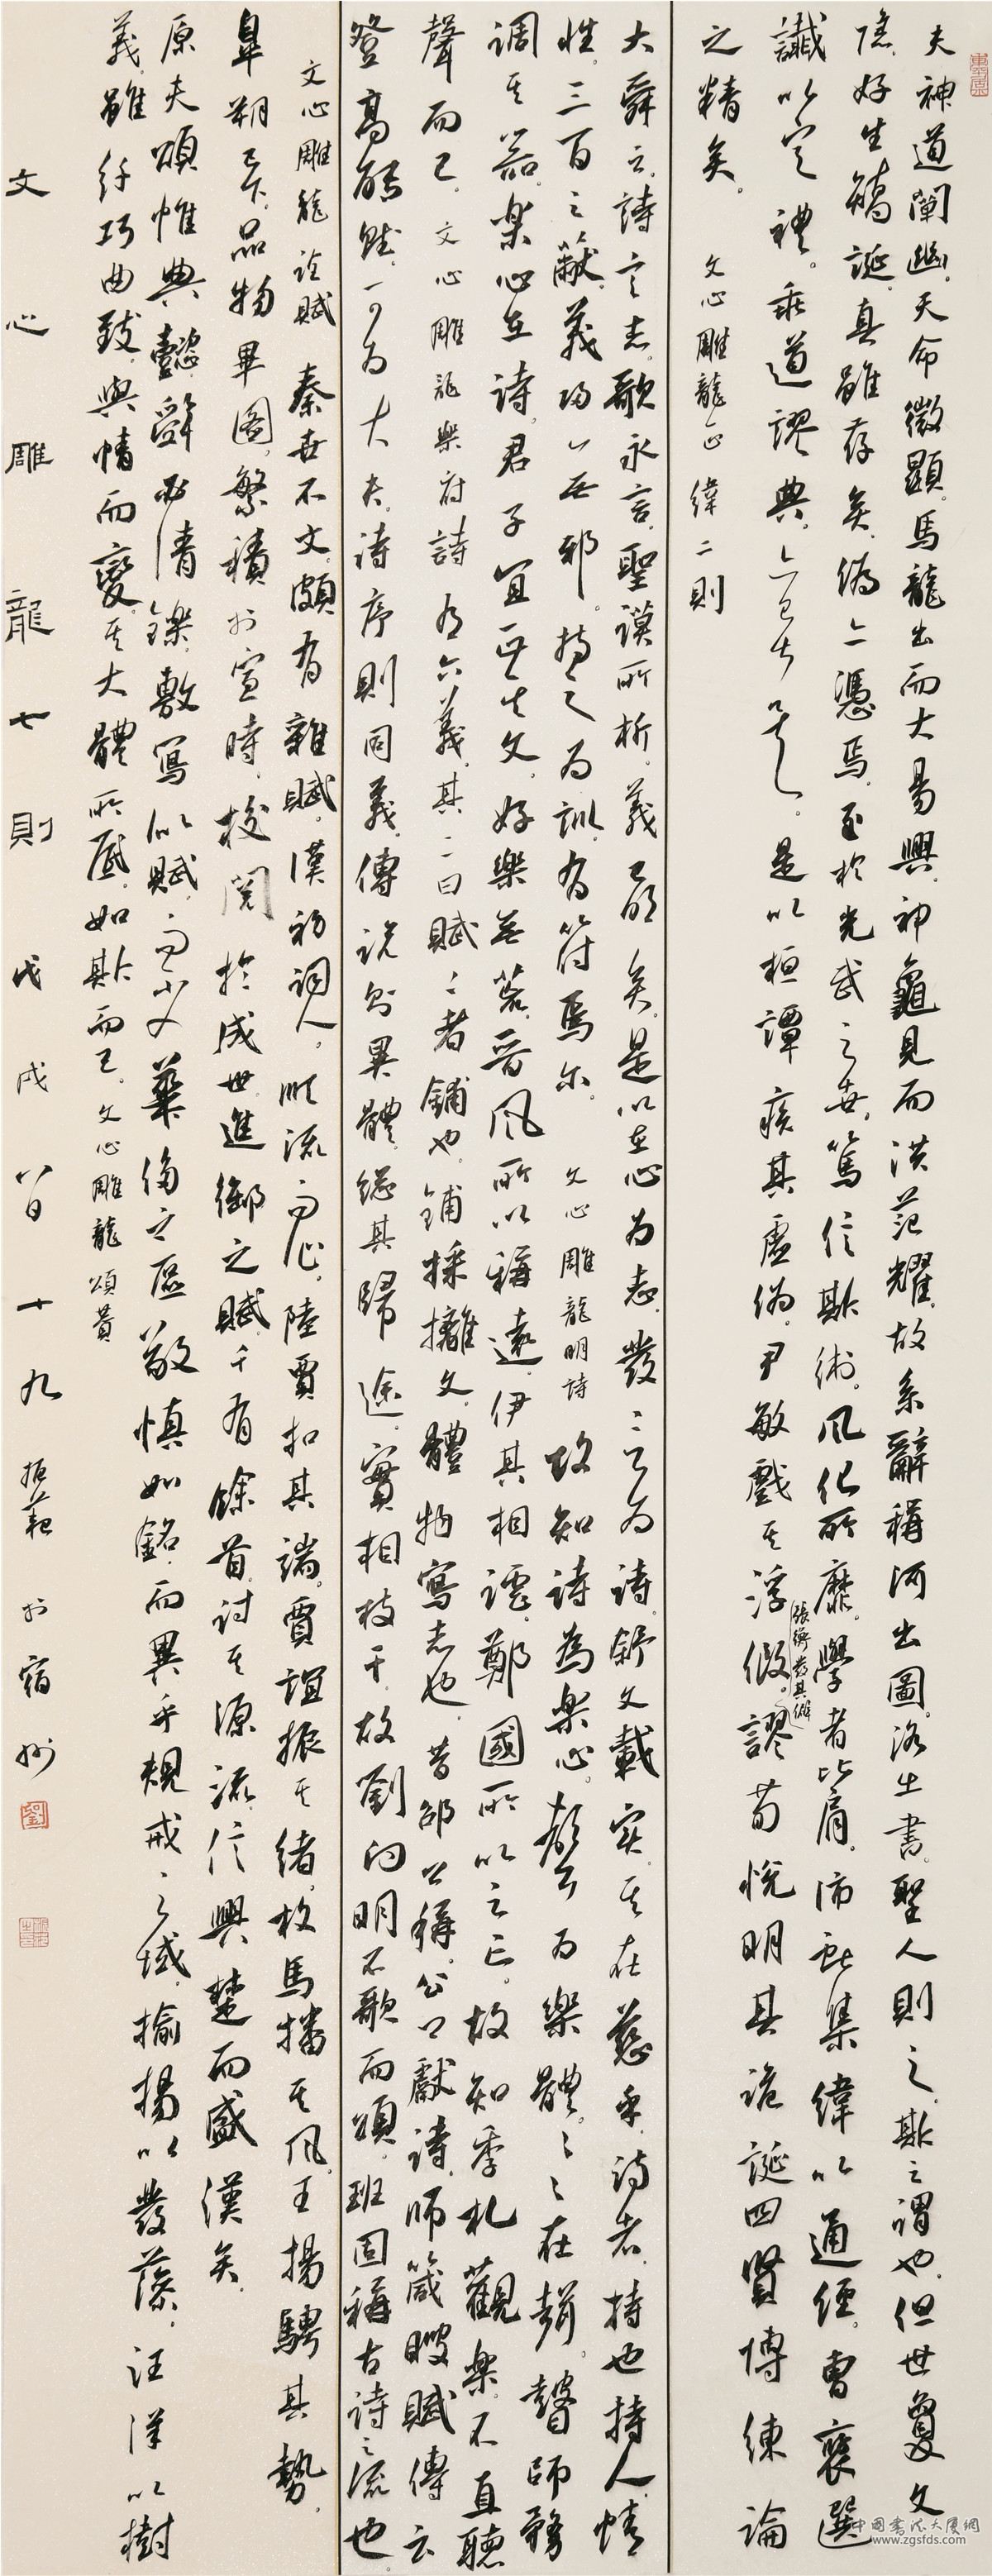 夫神道闡幽天命微顯馬龍出而大易興神龜見而洪範耀故系辭稱河出圖洛出書聖人則之斯之謂也但世夐文
隱好生矯誕真雖存矣偽亦憑焉至於光武之世篤信斯術風化所靡學者比肩沛獻集緯以通經曹褒選
讖以定禮乖道謬典亦已甚矣是以桓譚疾其虛偽尹敏戲其浮假張衡發其僻謬荀悅明其詭誕四賢博練論
之精矣 文心雕龍正緯二則
大舜云詩言志歌永言聖謨所析義已明矣是以在心為志發言為詩舒文載實其在茲乎詩者持也持人情
性三百之蔽義歸無邪持之為訓有符焉爾 文心雕龍明詩 故知詩為樂心聲為樂體體在聲瞽師務
調其器樂心在詩君子宜正其文好樂無荒晉風所以稱遠伊其相謔鄭國所以云亡故知季札觀樂不直聽
聲而已 文心雕龍樂府 詩有六義其二曰賦賦者鋪也鋪采摛文體物寫志也昔邵公稱公卿獻詩師箴瞍賦傳云
登高能賦可為大夫詩序則同義傳說則異體總其歸途實相枝幹故劉向明不歌而頌班固稱古詩之流也
文心雕龍詮賦 秦世不文頗有雜賦漢初詞人順流而作陸賈扣其端賈誼振其緒枚馬播其風王揚騁其勢
皋朔已下品物畢圖繁積於宣時校閱於成世進御之賦千有餘首討其源流信興楚而盛漢矣
原夫頌惟典懿辭必清鑠敷寫似賦而不入華侈之區敬慎如銘而異乎規戒之域揄揚以發藻汪洋以樹
義雖纖巧曲致與情而變其大體所底如斯而已 文心雕龍頌贊
文心雕龍七則 戊戌八月十九 振范於宿州
中國書法大廈網
www.zgsfds.com